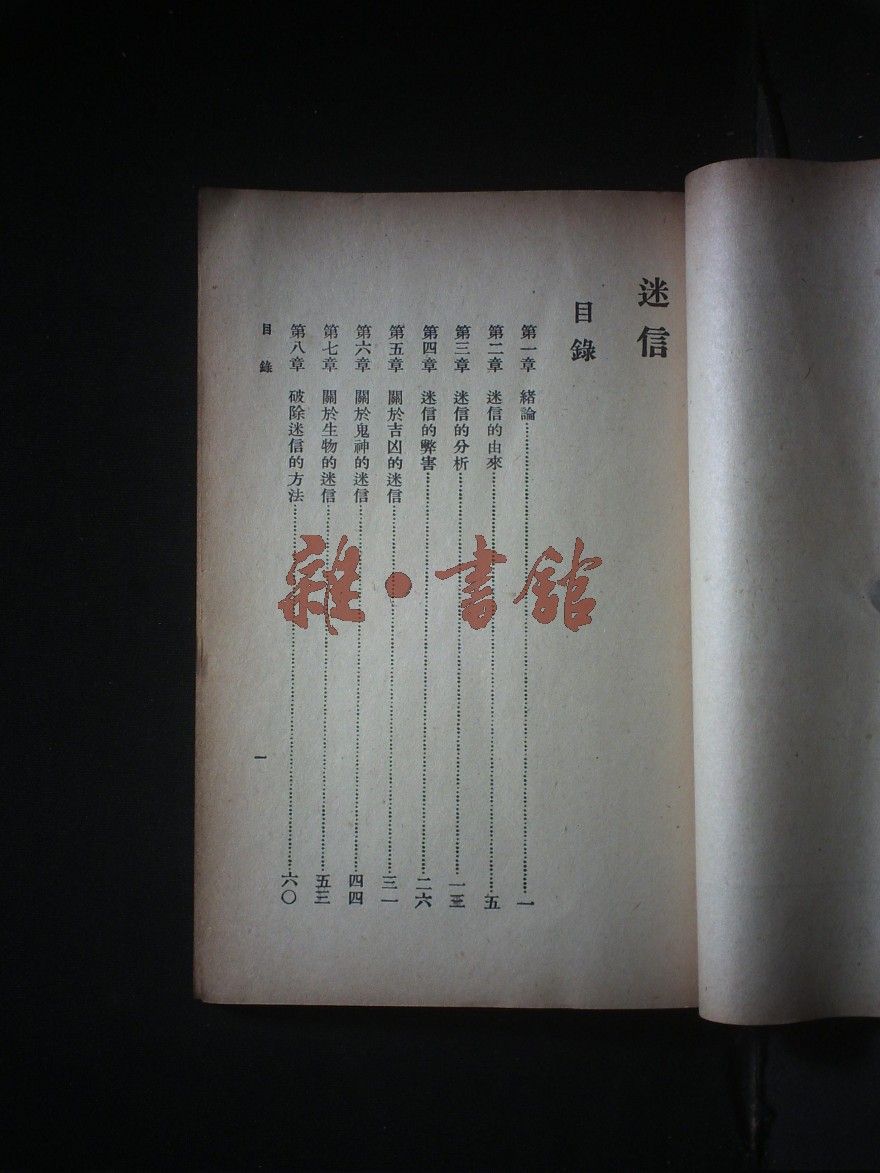 迷信
目錄
第一章 緒論……………一
第二章 迷信的由來……………五
第三章 迷信的分析……………一三
第四章 迷信的弊害……………二六
第五章 關於吉凶的迷信……………三一
第六章 關於鬼神的迷信……………四四
第七章 關於生物的迷信……………五三
第八章 破除迷信的方法……………六〇
目錄
一
雜·書館